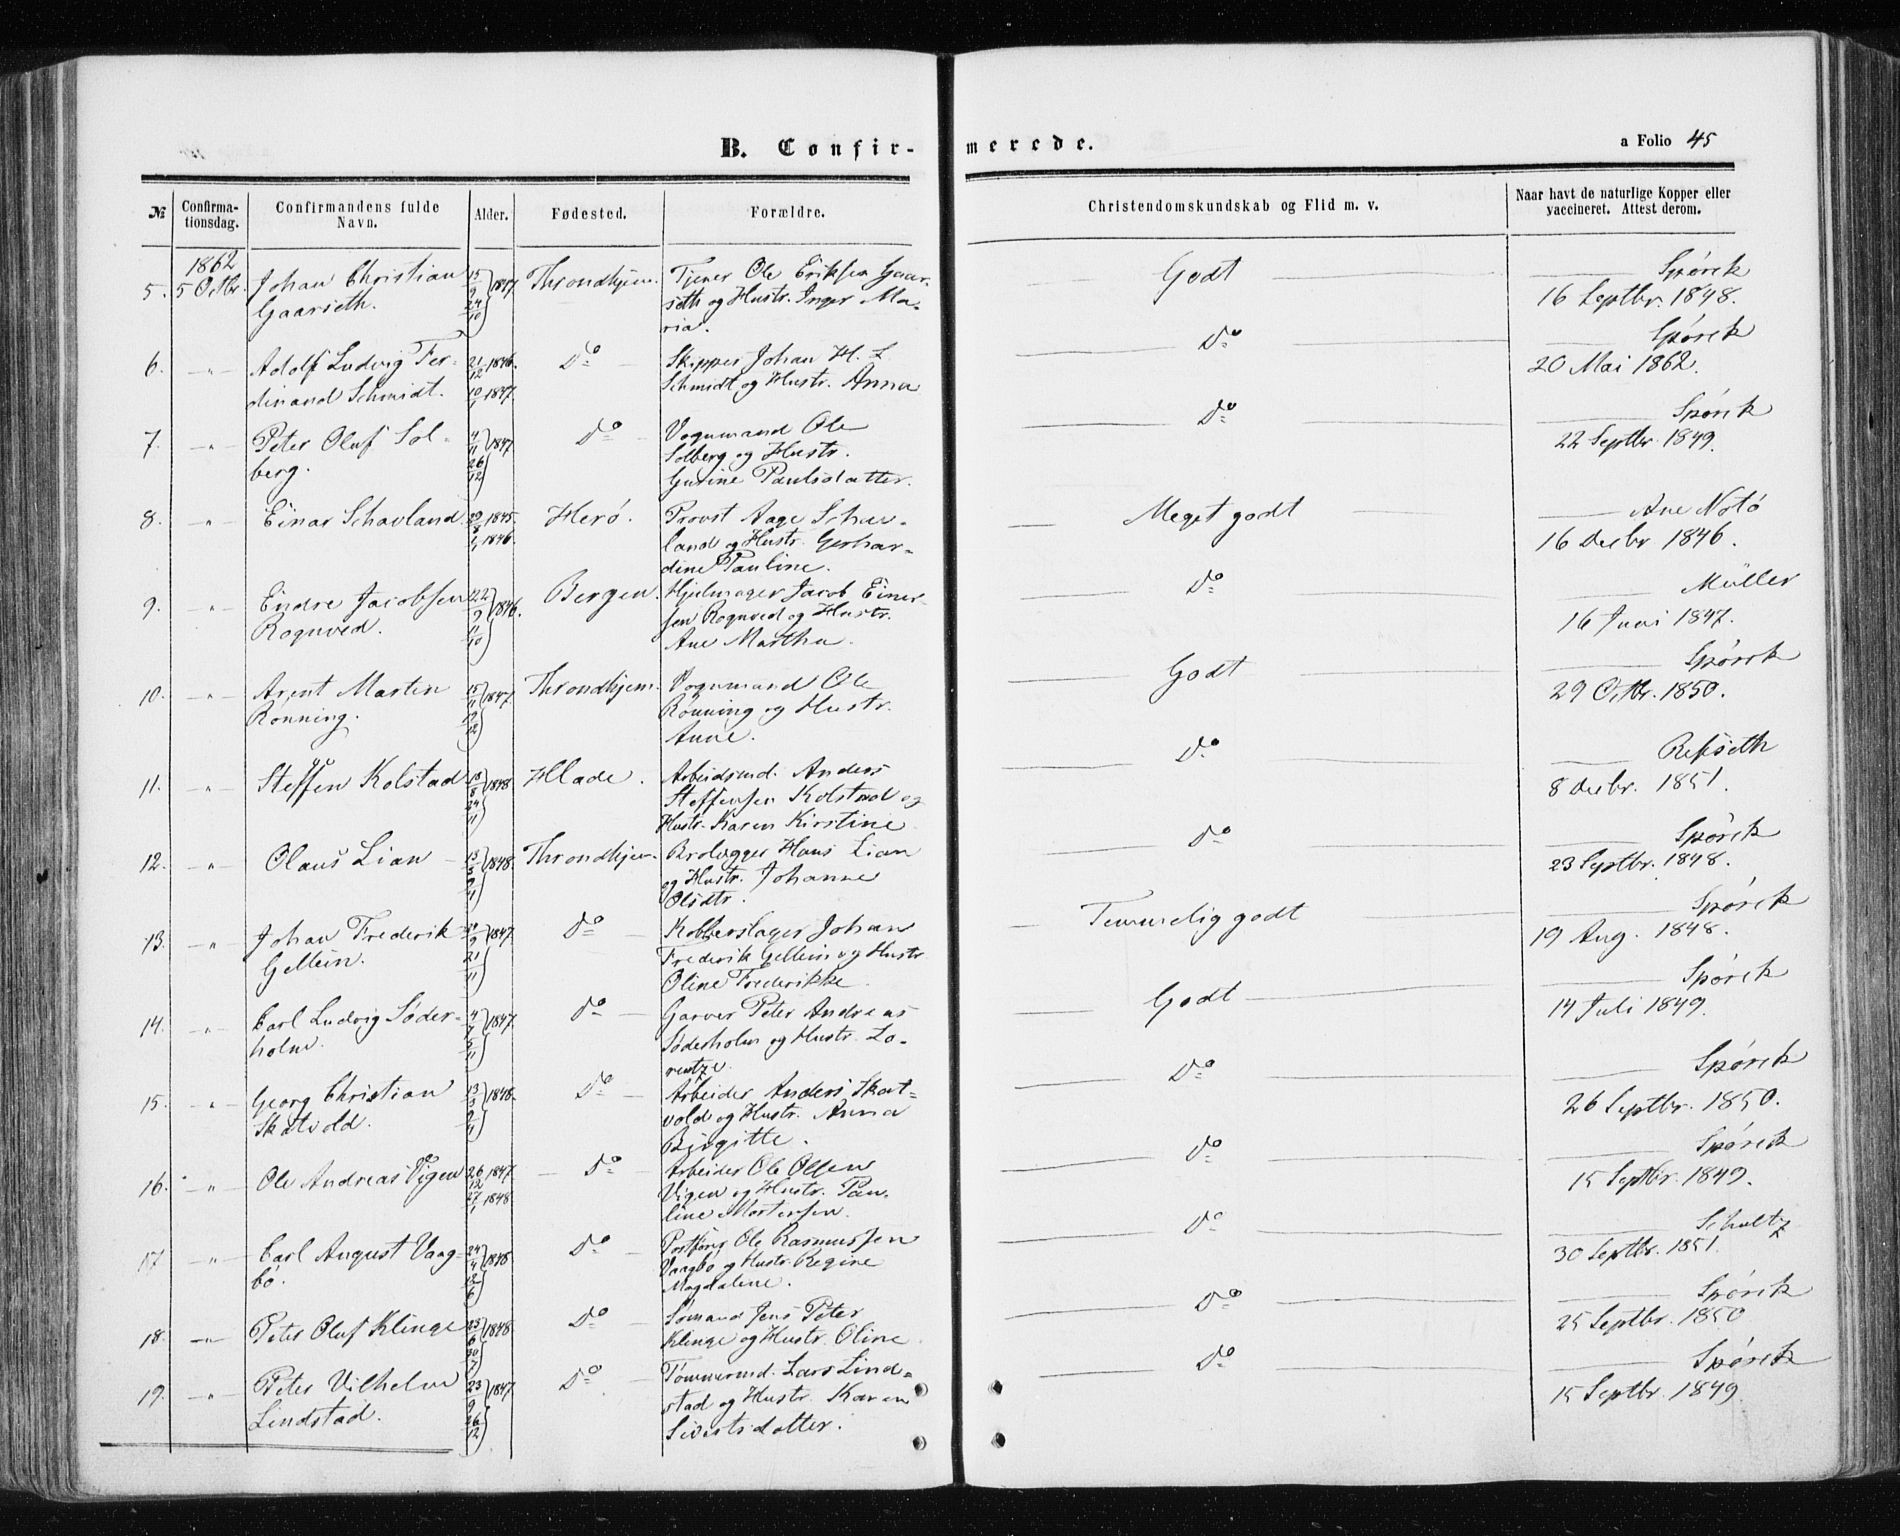 B. Confir- merede.
a Folio 45
№ Confirma-tionsdag. Confirmandens fulde Navn. Alder. Fødested. Forældre. Christendomskundskab og Flid m. v. Naar havt de naturlige Kopper eller vaccineret. Attest derom.
1862
5. 5 Octbr. Johan Christian 15/9 1847 Throndhjem. Tjener Ole Eriksen Gaar- Godt Spørck
Gaarseth. 24/10 seth og Hustr. Inger Ma- 16 Septbr. 1848.
ria.
6. " Adolf Ludvig Fer- 21/12 1846. Do Skipper Johan H. L. Do Spørck
dinand Schmidt. 10/1 1847. Schmidt og Hustr. Anna 20 Mai 1862.
7. " Peter Oluf Sol- 4/11 1847 Do Vognmand Ole Do Spørck
berg. 26/12 Solberg og Hustr. 22 Septbr. 1849.
Gurine Paulsdatter.
8. " Einar Schavland 1845. Herø. Provst Aage Schav- Meget godt Ane Notø
1/1 1846. land og Hustr. Gerhar- 16 Decbr 1846.
dine Pauline.
9. " Endre Jacobsen 22/9 1846. Bergen. Hjulmager Jacob Einer- Do Müller
Rognved. 11/10 sen Rognved og Hustr. 16 Juni 1847.
Ane Martha.
10. " Arent Martin 15/11 1847 Throndhjem. Vognmand Ole Godt Spørck
Rønning. 19/12 Rønning og Hustr. 29 Octbr. 1850.
Anne.
11. " Steffen Kolstad 1848 Hlade. Arbeidsmd. Anders Do Refseth
24/11 Steffensen Kolstad og 8 Decbr. 1851.
Hustr. Karen Kirstine
12. " Olaus Lian 1848. Throndhjem. Brolægger Hans Lian Do Spørck
og Hustr. Johanne 23 Septbr. 1848.
Olsdtr.
13. " Johan Frederik 1847. Do Kobberslager Johan Temmelig godt Spørck
Gellein. 21/11 Frederik Gellein og Hustr. 19 Aug. 1848.
Oline Frederikke.
14. " Carl Ludvig Søder- 1847. Do Garver Peter Andreas Godt Spørck
holm. Søderholm og Hustr. Lo- 14 Juli 1849.
rentze.
15. " Georg Christian 13/3 1848. Do Arbeider Anders Skat- Do Spørck
Skatvold. vold og Hustr. Anna 26 Septbr. 1850.
Birgitte.
16. " Ole Andreas Vigen 26/12 1847. Do Arbeider Ole Olsen Do Spørck
27/1 1848 Vigen og Hustr. Pau- 15 Septbr. 1849.
line Mortensen.
17 " Carl August Vaag- 24/4 1848 Do Postbring Ole Rasmussen Do Schultz
bø. 12/6 Vaagbø og Hustr. Regine 30 Septbr. 1851.
Magdalene.
18. " Peter Oluf Klinge 25/6 1848 Do Sømand Jens Peter Do Spørck
30/7 Klinge og Hustr. Oline 25 Septbr. 1850
19. " Peter Vilhelm 23/9 1847. Do Tømmermd. Lars Lind- Do Spørck
Lindstad. 26/12 stad og Hustr. Karen 15 Septbr. 1849.
Sivertsdatter.